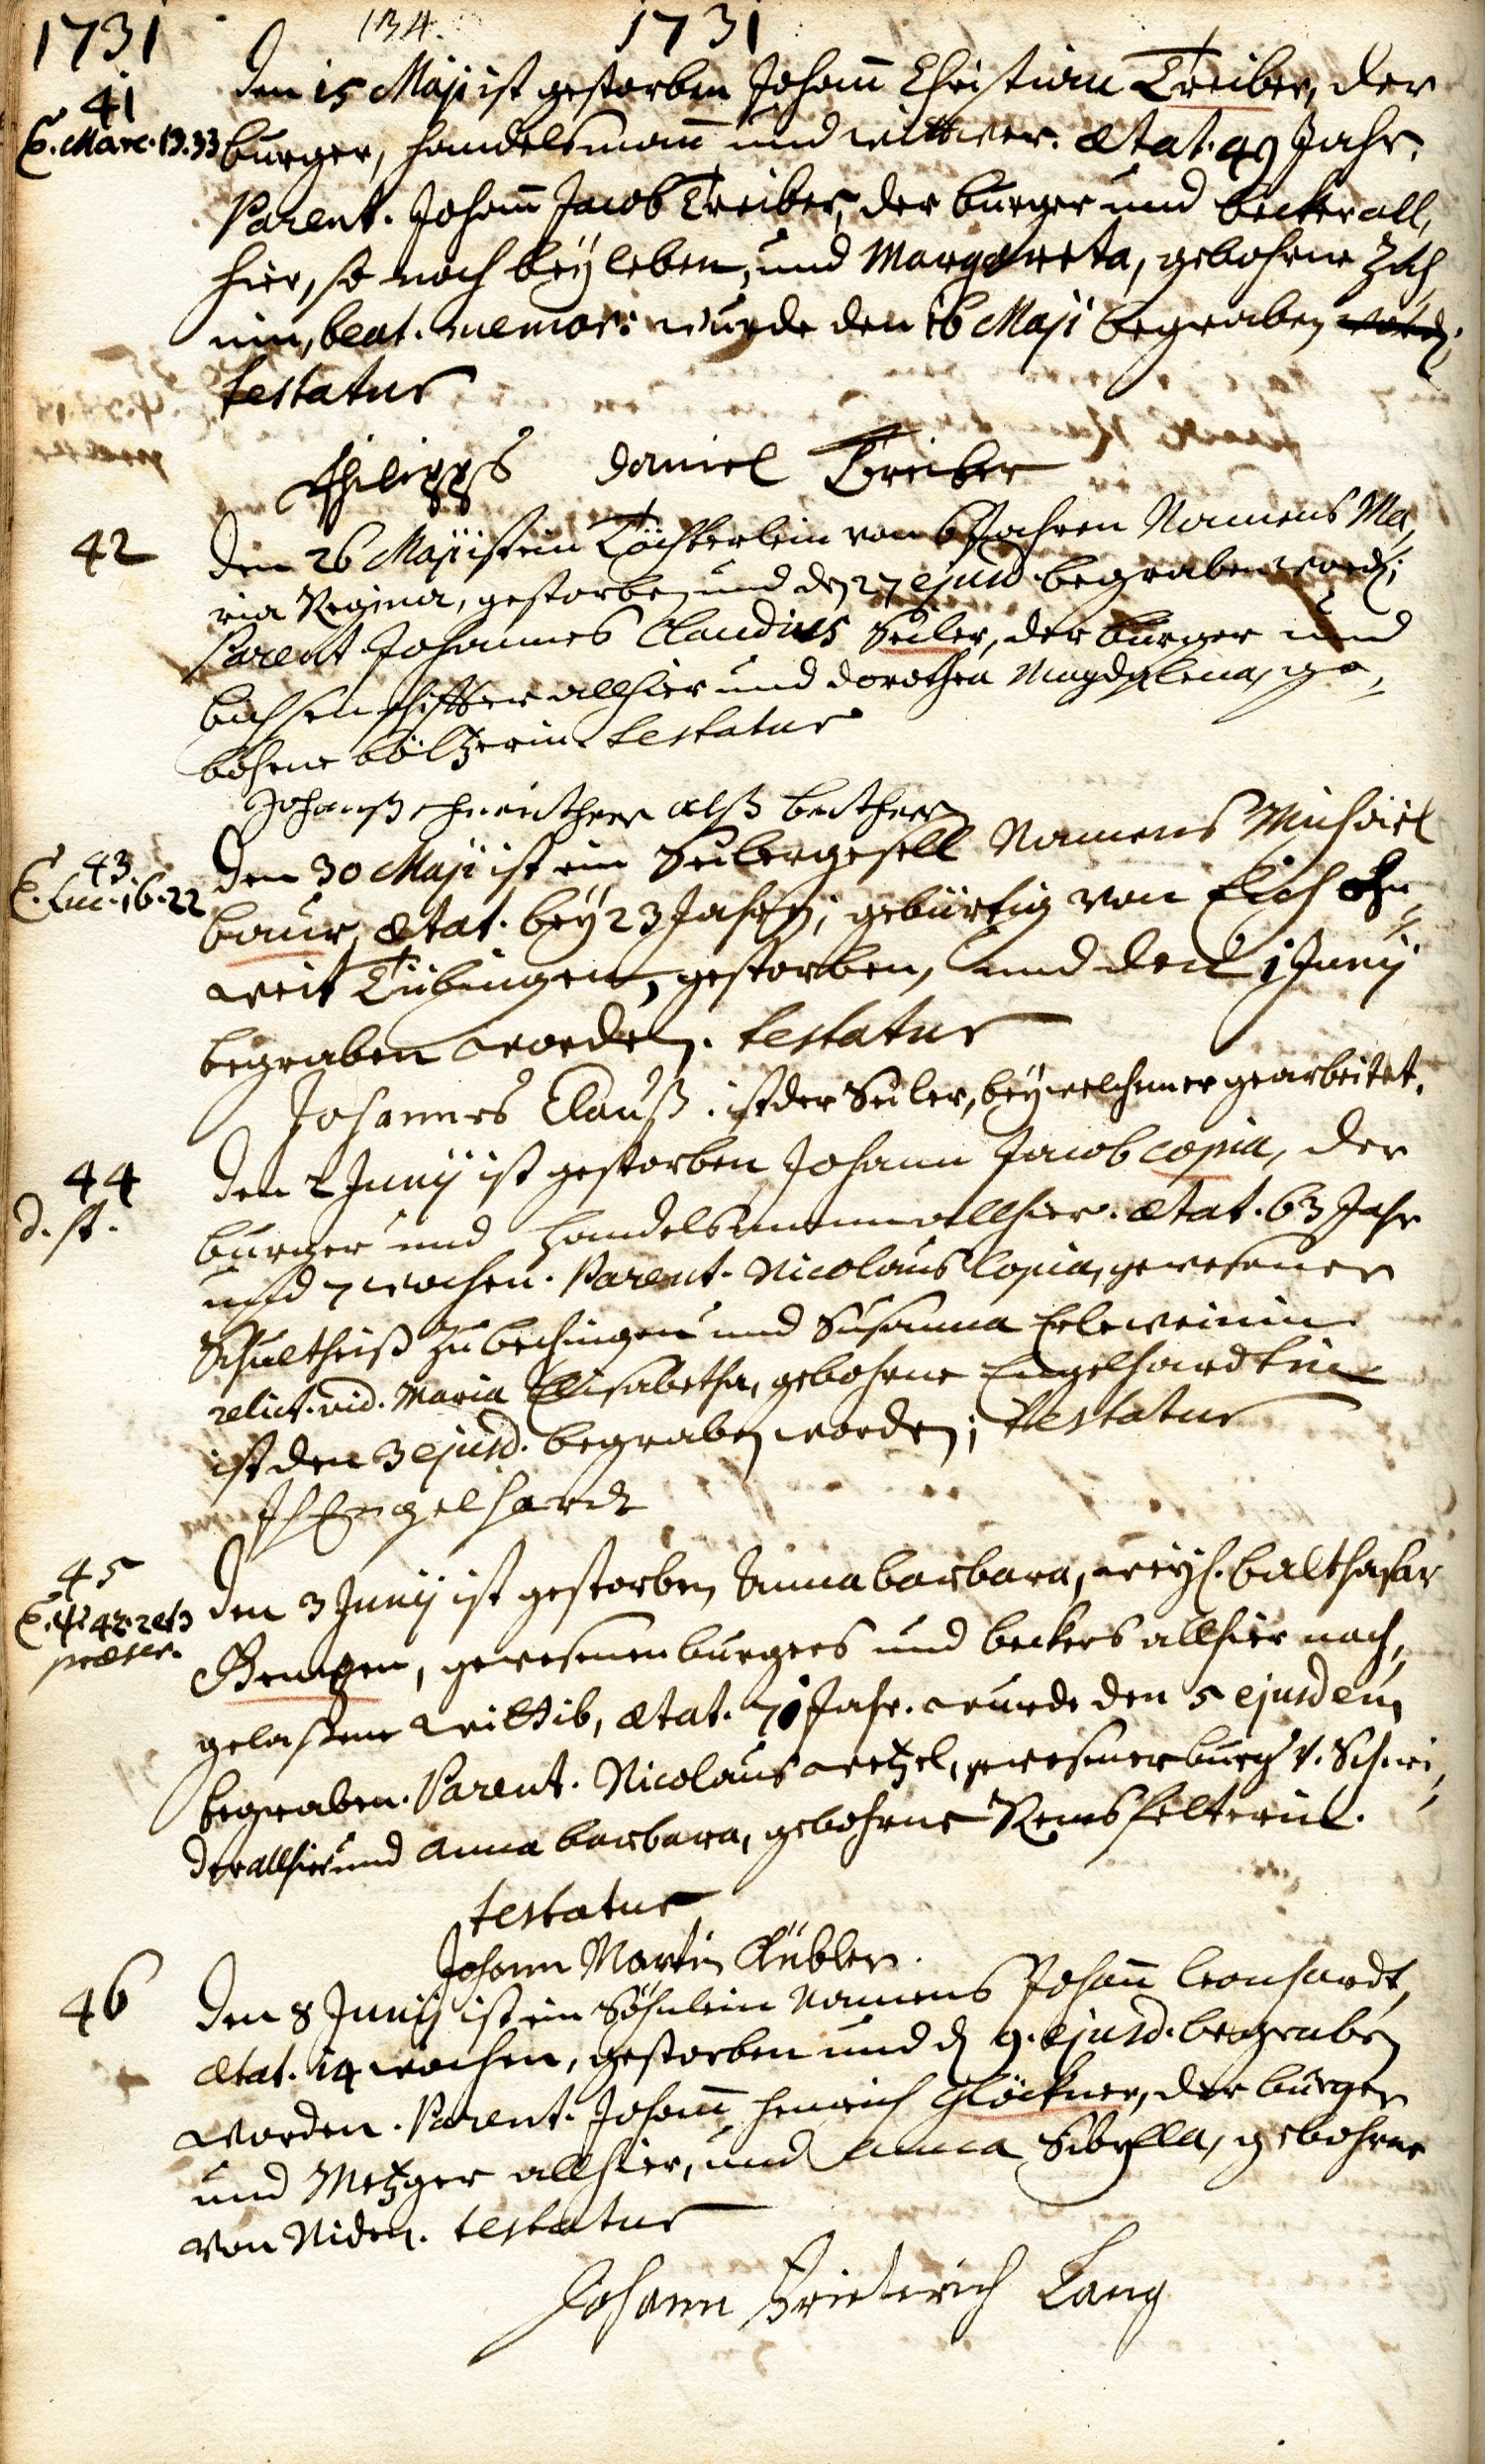 1731 134. 1731
41 Den 15 Maji ist gestorben Johann Christian Treiber, der
C. Marc. 13.33 burger, handelsmann und wittwer. ætat. 49 Jahr.
Parent. Johann Jacob Treiber, der burger und becker all,
hier, so noch beÿ leben, und Margareta, gebohrne
beat. memor: wurde den 16 Maji begraben
testatur
Philipps Daniel Treiber
42 Den 26 Maji ist ein Töchterlein von 6 Jahren Namens Ma,
ria Regina, gestorben und den 27 ejusd begraben word.
Parent Johannes Claudius Seiler, der burger und
allhier und Dorothea Magdalena, ge,
bohrne bältzerin testatur
Johanß alß
43 Den 30 Maji ist ein Seilergesell Namens Michael
C. Luc. 16.22 baur, ætat. beÿ 23 Jahren, gebürtig von Eich ohn,
weit Tübingen, gestorben, und den 1 Junij
begraben worden. testatur
Johannes Clauß. ist der Seiler, beÿ welchem er gearbeitet.
44 Den 2 Junij ist gestorben Johann Jacob Copia, der
d. st. burger und handelsmann allhier. ætat. 63 Jahr
und 7 wochen. Parent. Nicolaus Copia, gewesener
Schultheiß zu bechingen und Susanna Erleweinin
relict. vid. Maria Elisabetha, gebohrne Engelhardtin
ist den 3 ejusd. begraben worden; testatur
JHEngelhardt
45 Den 3 Junij ist gestorben Anna barbara, weÿl. balthasar
C. ψ. 42. 2 et 3 gewesenen burgers und beckers allhier nach,
gelaßene wittib, ætat. 71 Jahr. wurde den 5 ejusdem
begraben. Parent. Nicolaus wetzel, gewesener burg. v. Schnei,
der allhier und Anna barbara, gebohrne Remsfelterin.
testatur
Johann Martin Kübler.
46 Den 8 Junij ist ein Söhnlein Namens Johann Leonhardt,
ætat. 14 wochen, gestorben und d. 9. ejusd. begraben
worden. Parent. Johann Henrich Glöckner, der burger
und Metzger allhier, und Anna Sibylla, gebohrne
von Niden. testatur
Johann Frieterich Lang